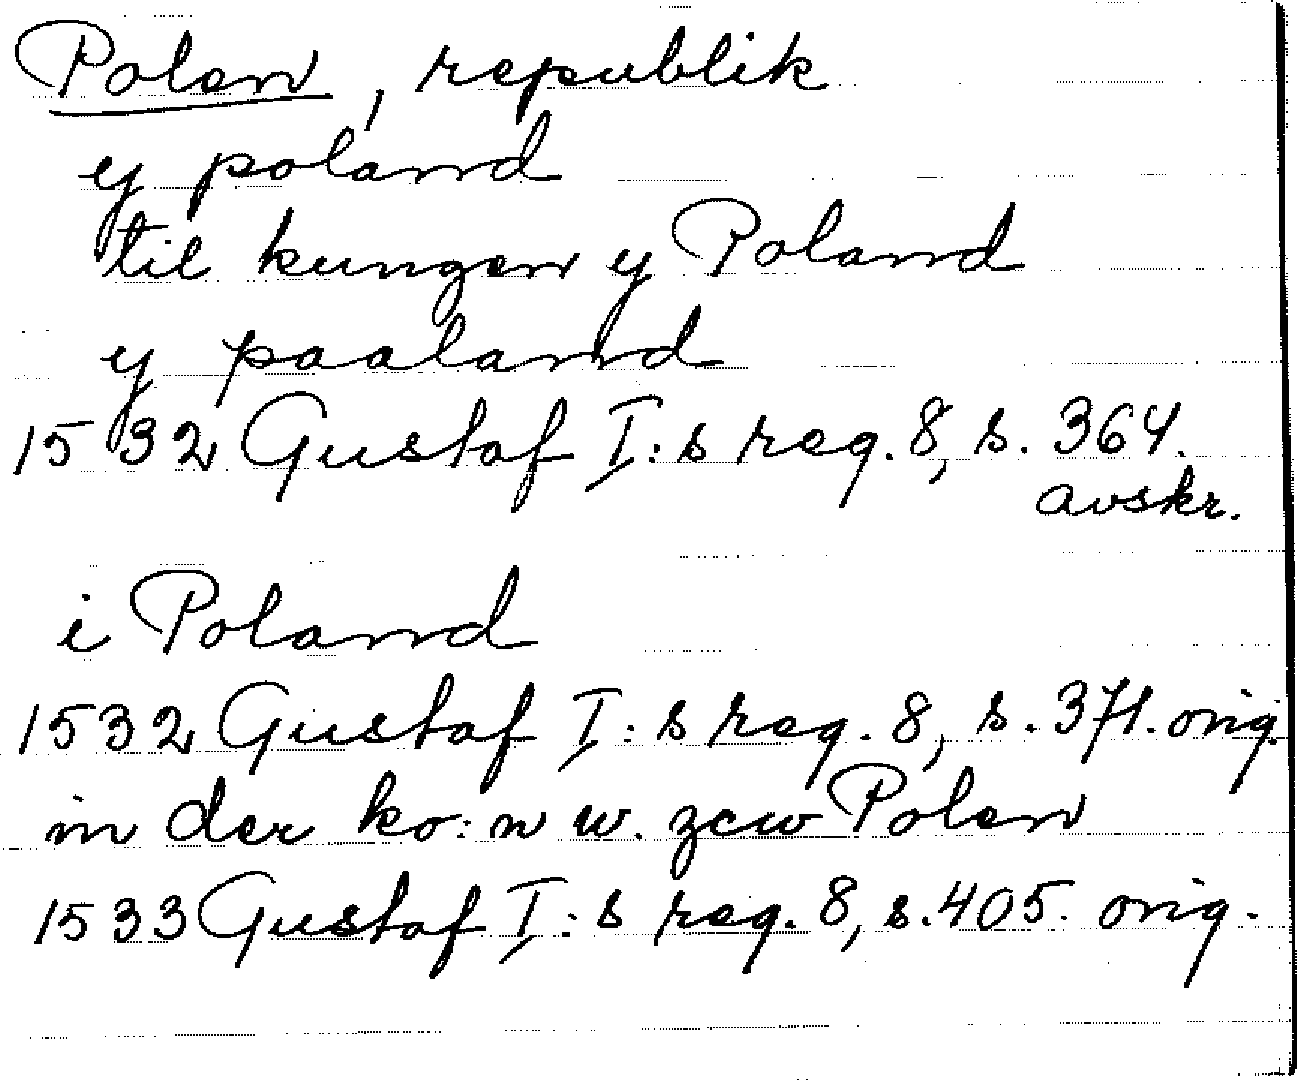 Polen, republik
y poland
til kungen y Poland
y paaland
1532 Gustaf I:s reg. 8, s. 364.
avskr.
i Poland
1532 Gustaf I:s reg. 8, s. 371. orig.
in der ko: n w. zcw Polen
1533 Gustaf I:s reg. 8, s. 405. orig.